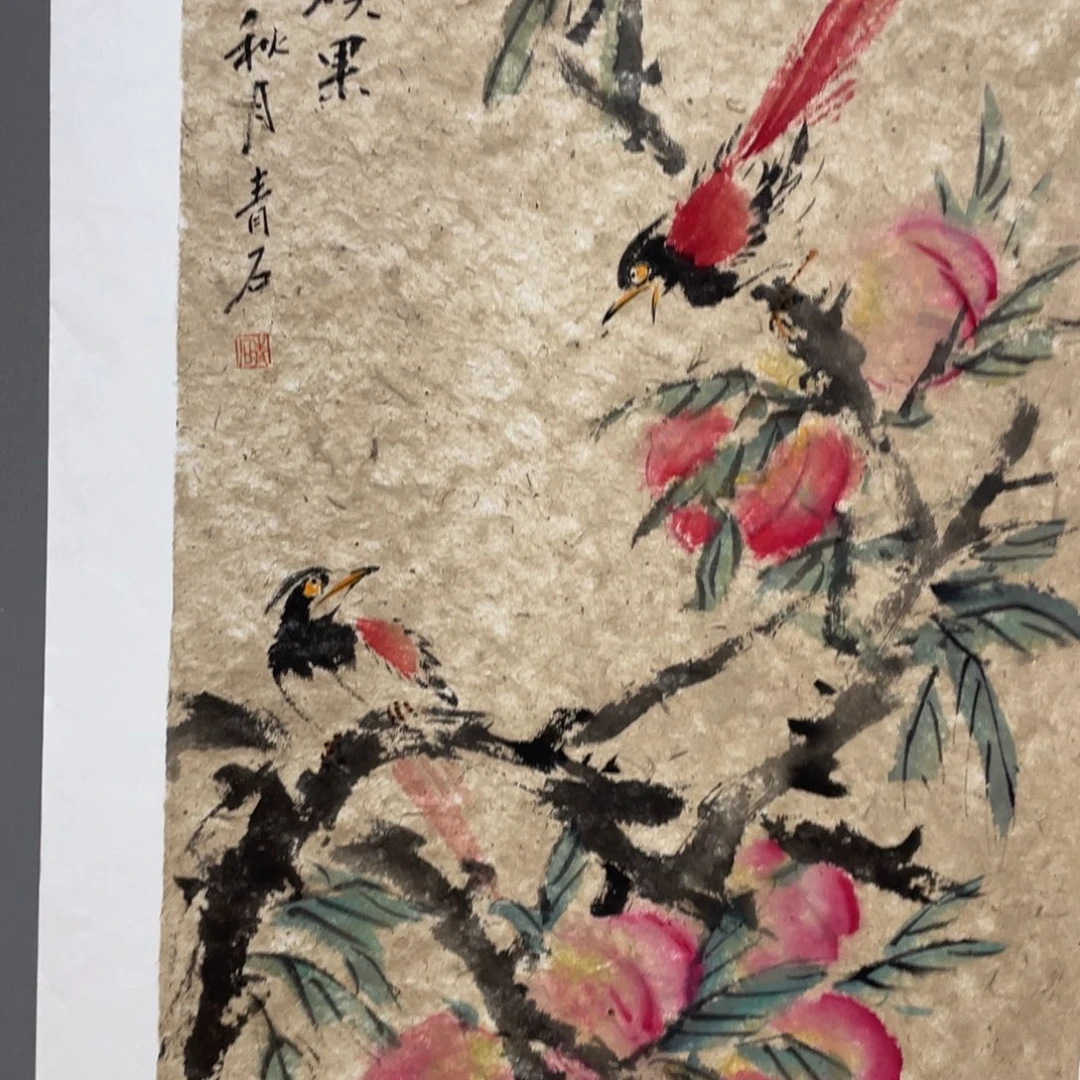 果
秋月青石